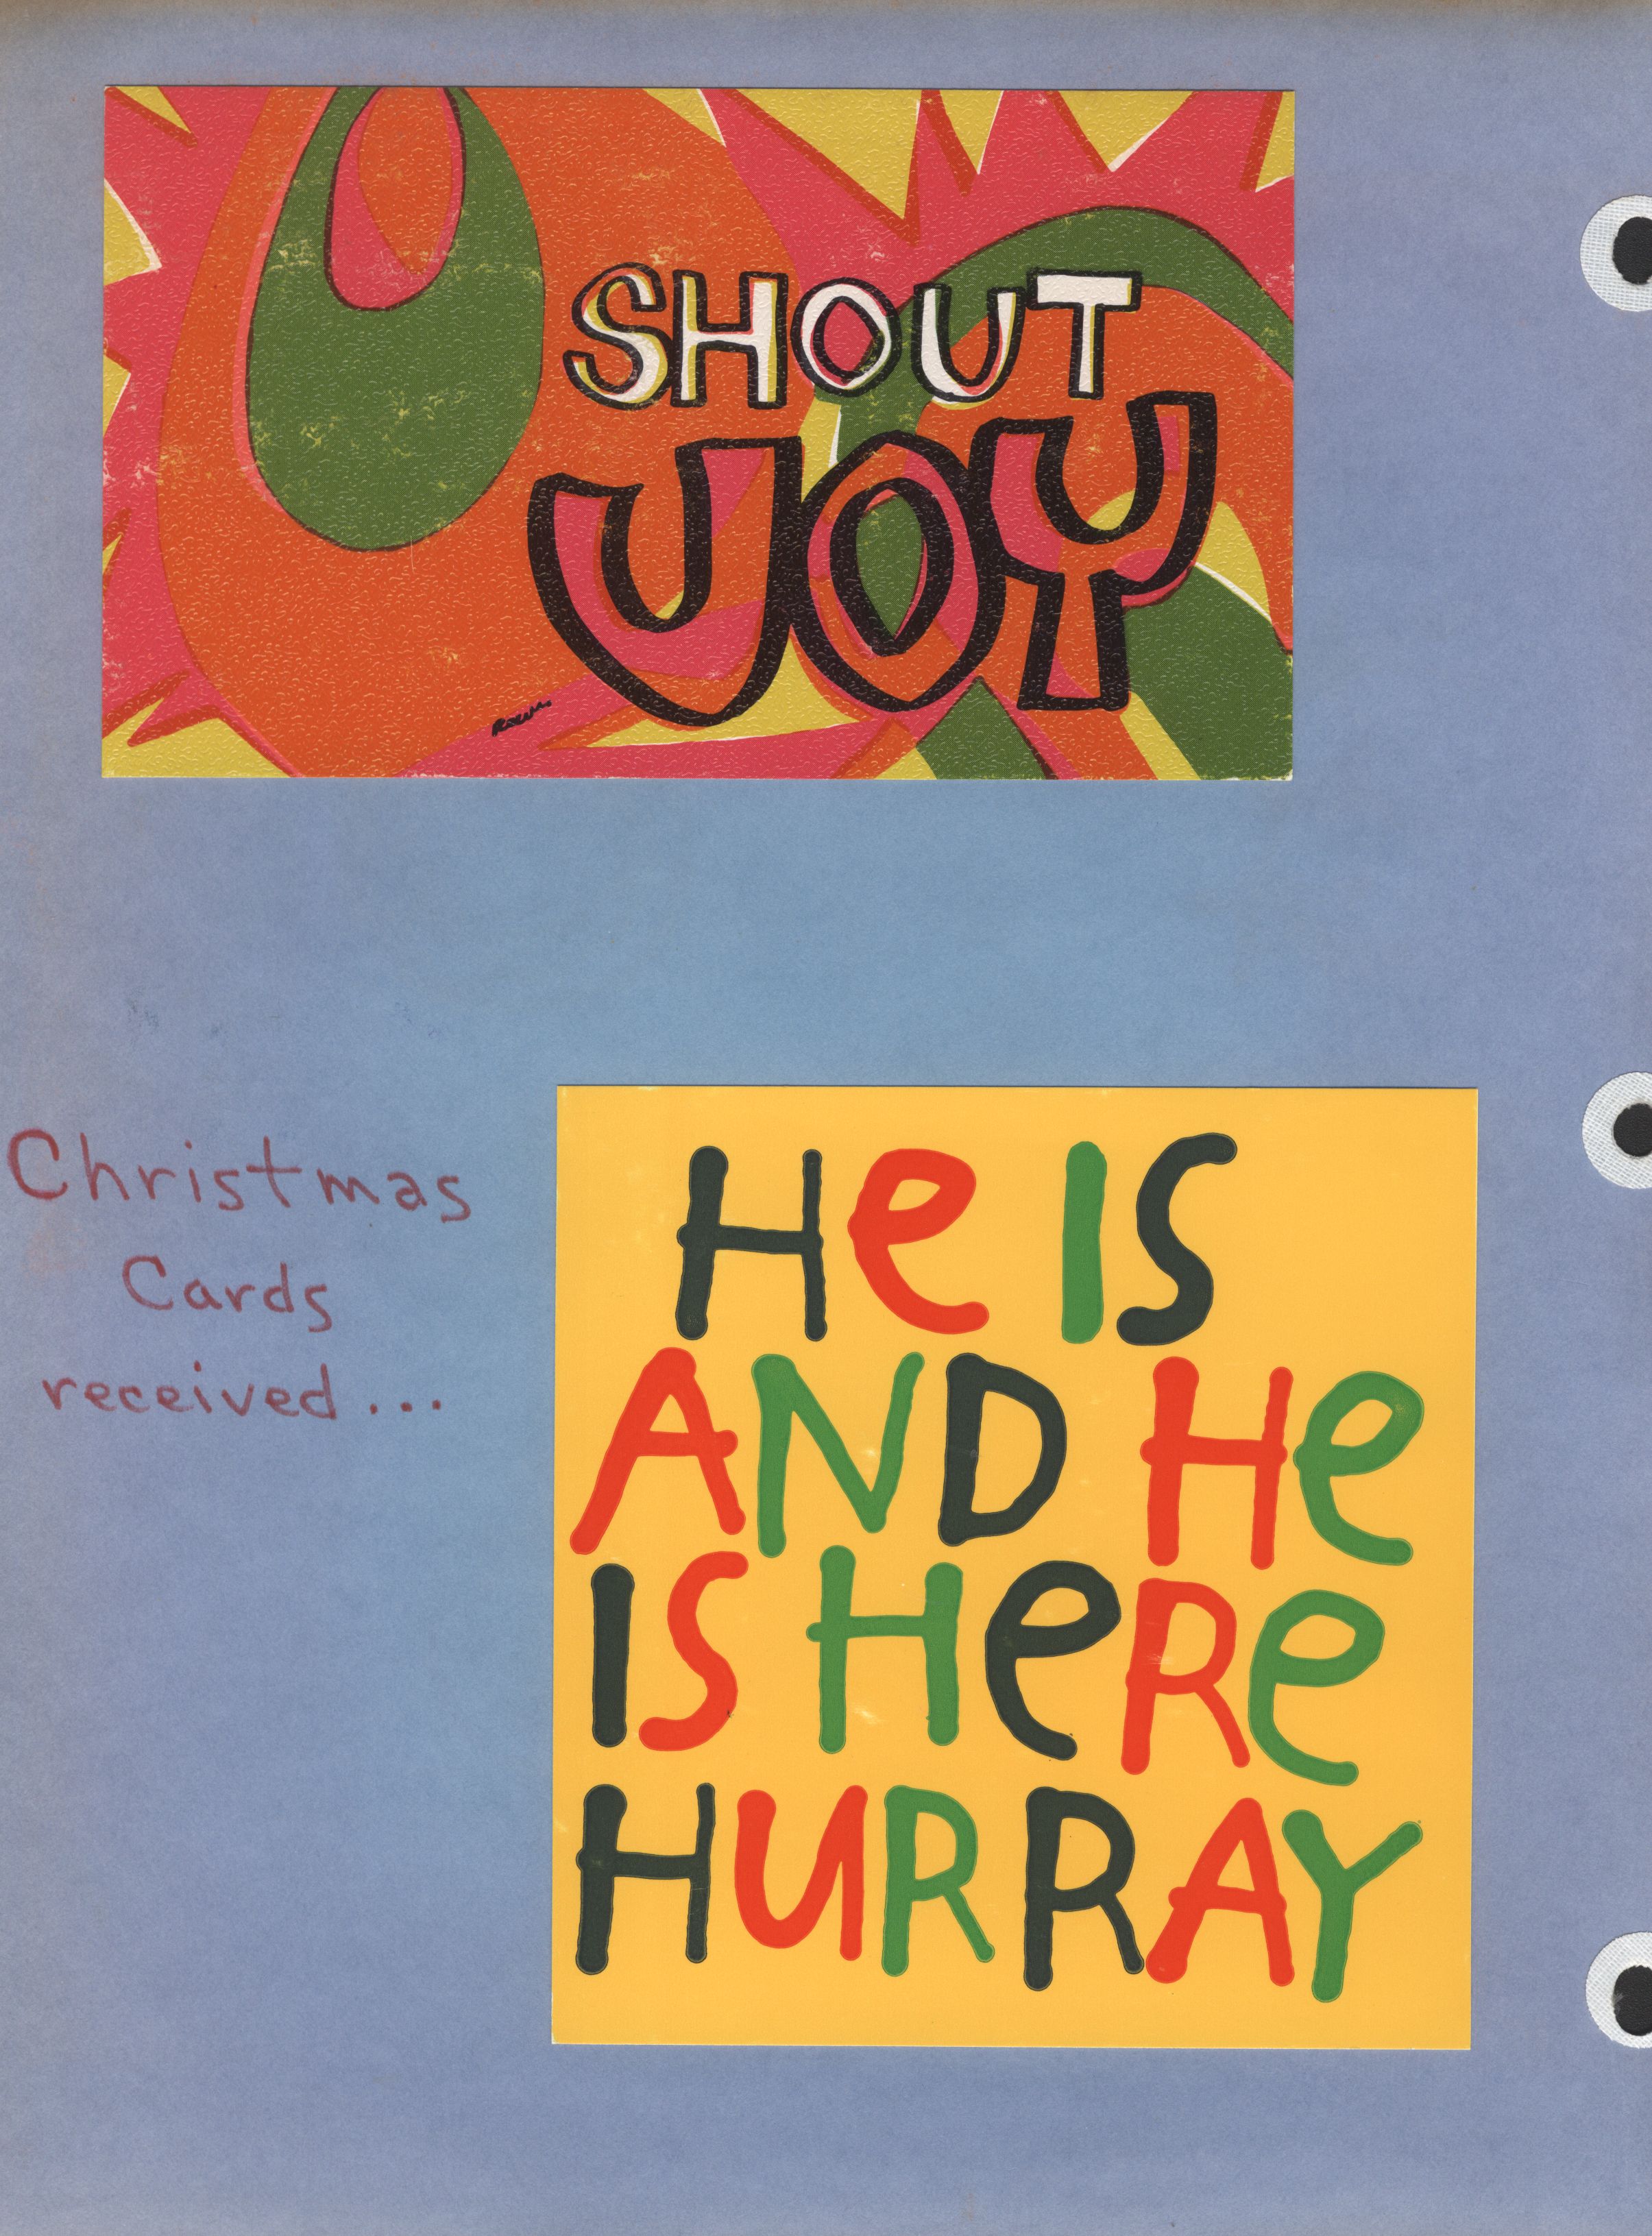 SHOUT
JOY
Christmas
Cards
received...
He IS
AND He
IS HeRe
HURRAY